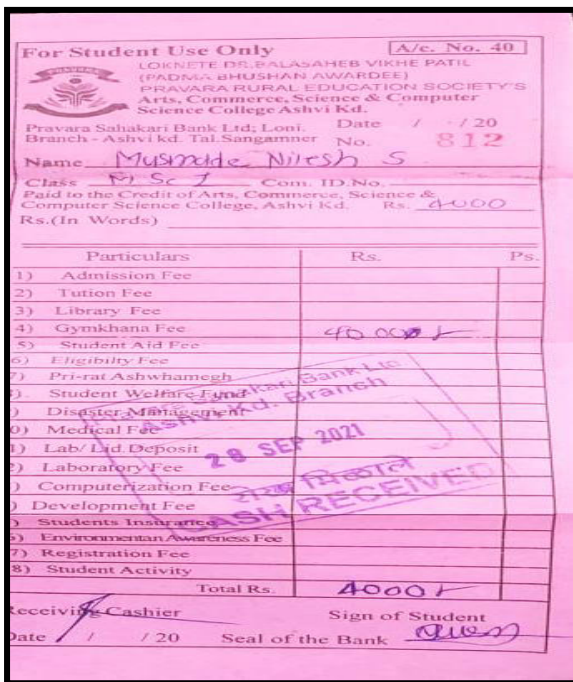 For Student Use Only
A/c. No. 40
LOKNETE DR.BALASAHEB VIKHE PATIL
(PADMA BHUSHAN AWARDEE)
PRAVARA RURAL EDUCATION SOCIETY'S
Arts, Commerce, Science & Computer
Science College Ashvi Kd.
PRAVARA
Pravara Sahakari Bank Ltd; Loni. Date / / 20
Branch - Ashvi kd. Tal.Sangamner No. 812
Name Musmade Nilesh S
Class M Sc I Com. ID.No.
Paid to the Credit of Arts, Commerce, Science &
Computer Science College, Ashvi Kd. Rs. 4000
Rs.(In Words)
Particulars Rs. Ps.
1) Admission Fee
2) Tution Fee
3) Library Fee
4) Gymkhana Fee
5) Student Aid Fee
6) Eligibilty Fee
7) Pri-rat Ashwhamegh
). Student Welfare Fund
) Disaster Management
0) Medical Fee
1) Lab/ Lid.Deposit
2) Laboratory Fee
) Computerization Fee
) Development Fee
) Students Insurance
5) Environmentan Awareness Fee
7) Registration Fee
8) Student Activity
Pravara Sahakari Bank Ltd
Ashvi Kd. Branch
28 SEP 2021
रोख मिळाले
CASH RECEIVED
Total Rs. 4000/-
Receiving Cashier Sign of Student
Date / / 20 Seal of the Bank